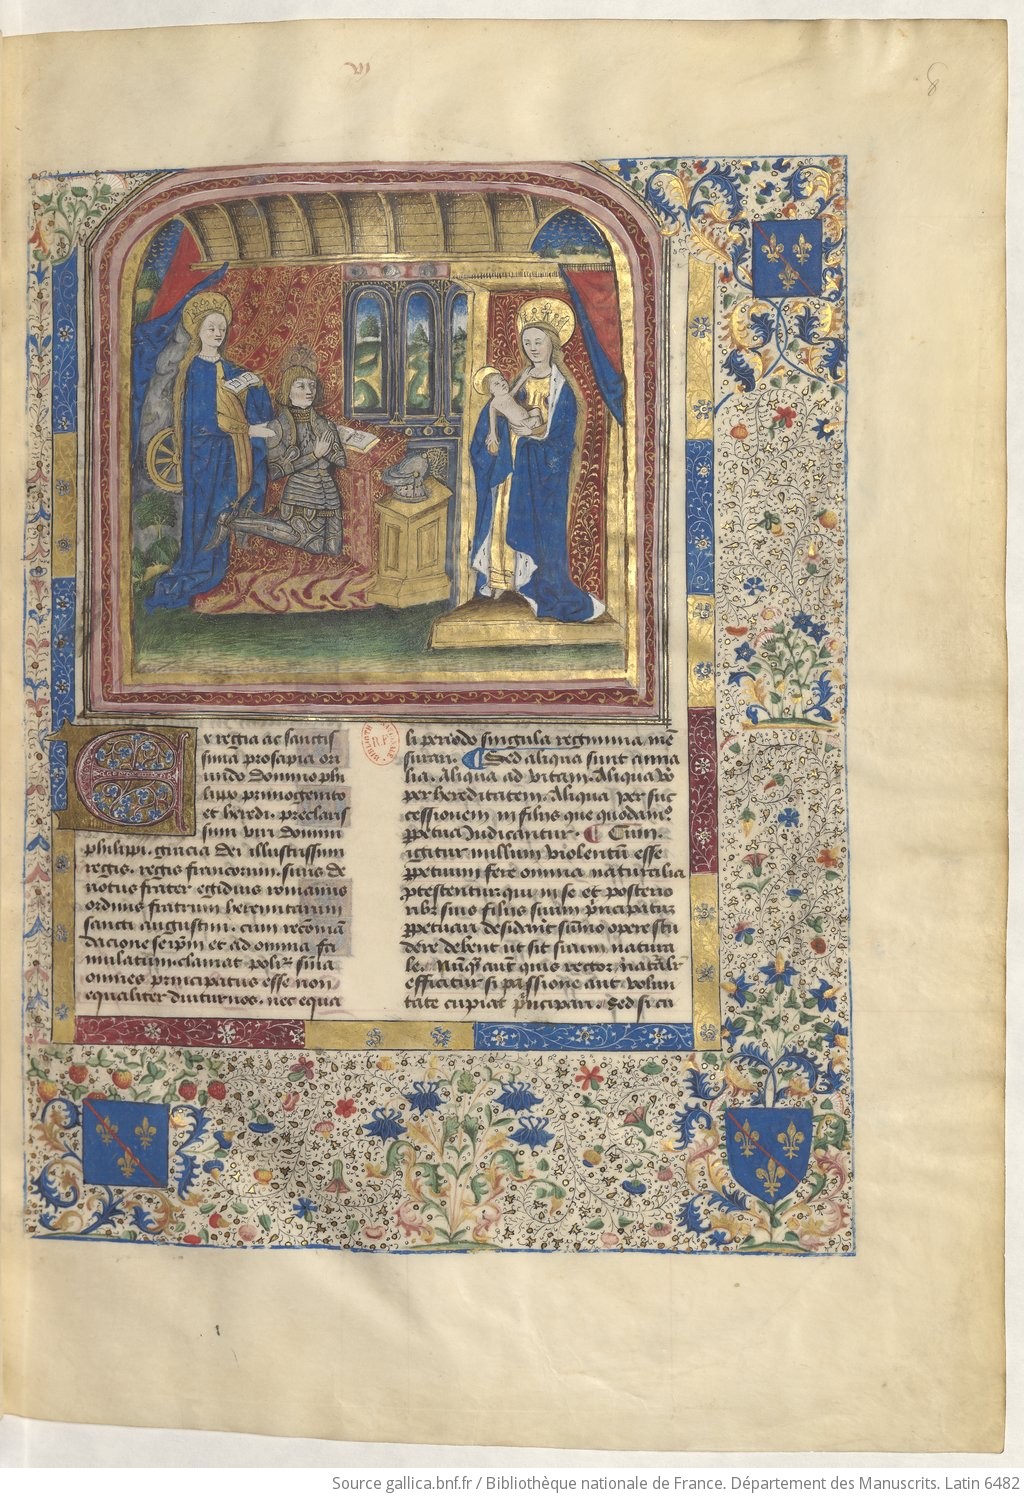 8
Ex regia ac sanctis
sima prosapia ori
undo Domino phi
lippo primogenito
et heredi. preclaris
simi viri Domini
philippi. gracia dei illustrissimi
regis. regis francorum. suus de
notus frater egidius romanus
ordinis fratrum heremitarum
sancti augustini. cum recomā
dacione seip̄m et ad omnia fa
mulatum. clamat polit̉. sn̄ia
omnes principatus esse non
equaliter diuturnos. nec equa
li periodo singula regimina. mē
surari. Sed aliqua sunt annua
lia. Aliqua ad vitam. Aliqua v̊o
per hereditatem. Aliqua per suc
cessionem in filijs que quodam̊
ꝑpetua Judicantur. Cum
igitur nullum violentū esse
ꝑpetuum fere omnia naturalia
ꝓtestentur. qui in se et posterio
ribꝫ suis filijs suum p̄ncipatū
ꝑpetuari desiderant sūmo opere stu
dere debent ut sit suum natura
le. Nūꝙ aut̄ quis rector nat̉alis
efficitur si passione aut volun
tate cupiat p̄ncipari. Sed si cu
Source gallica.bnf.fr / Bibliothèque nationale de France. Département des Manuscrits. Latin 6482